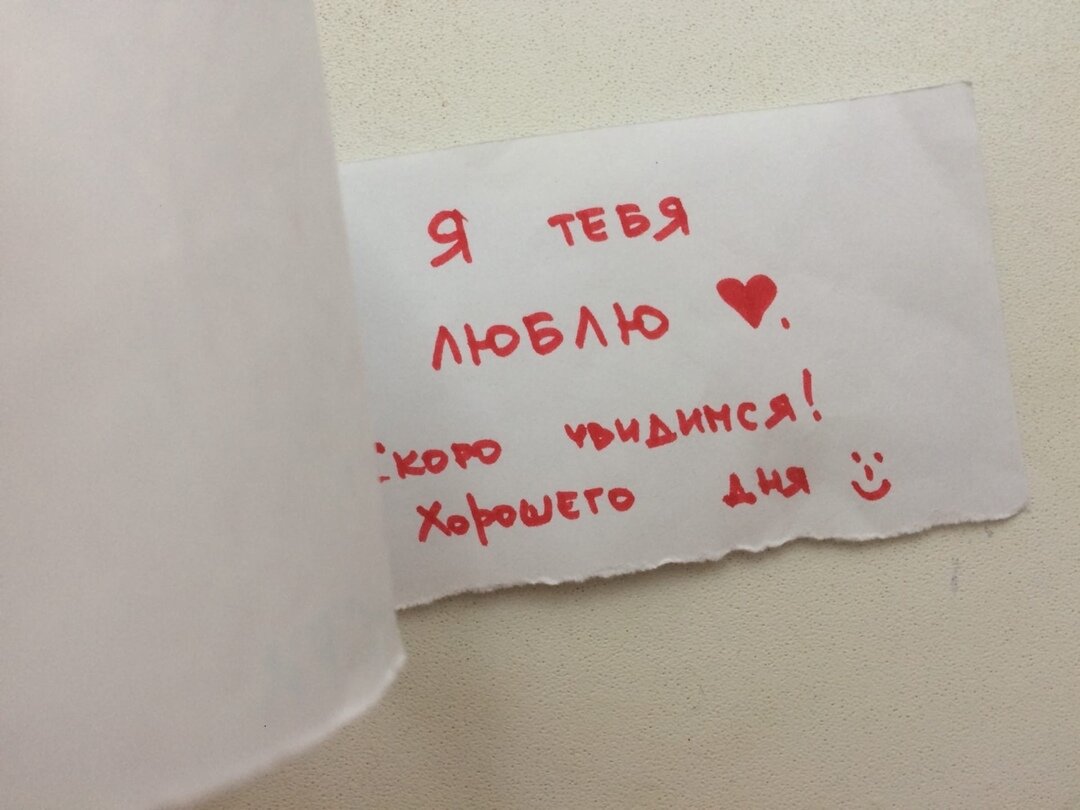 Я ТЕБЯ
ЛЮБЛЮ ♥.
Скоро увидимся!
Хорошего дня :)